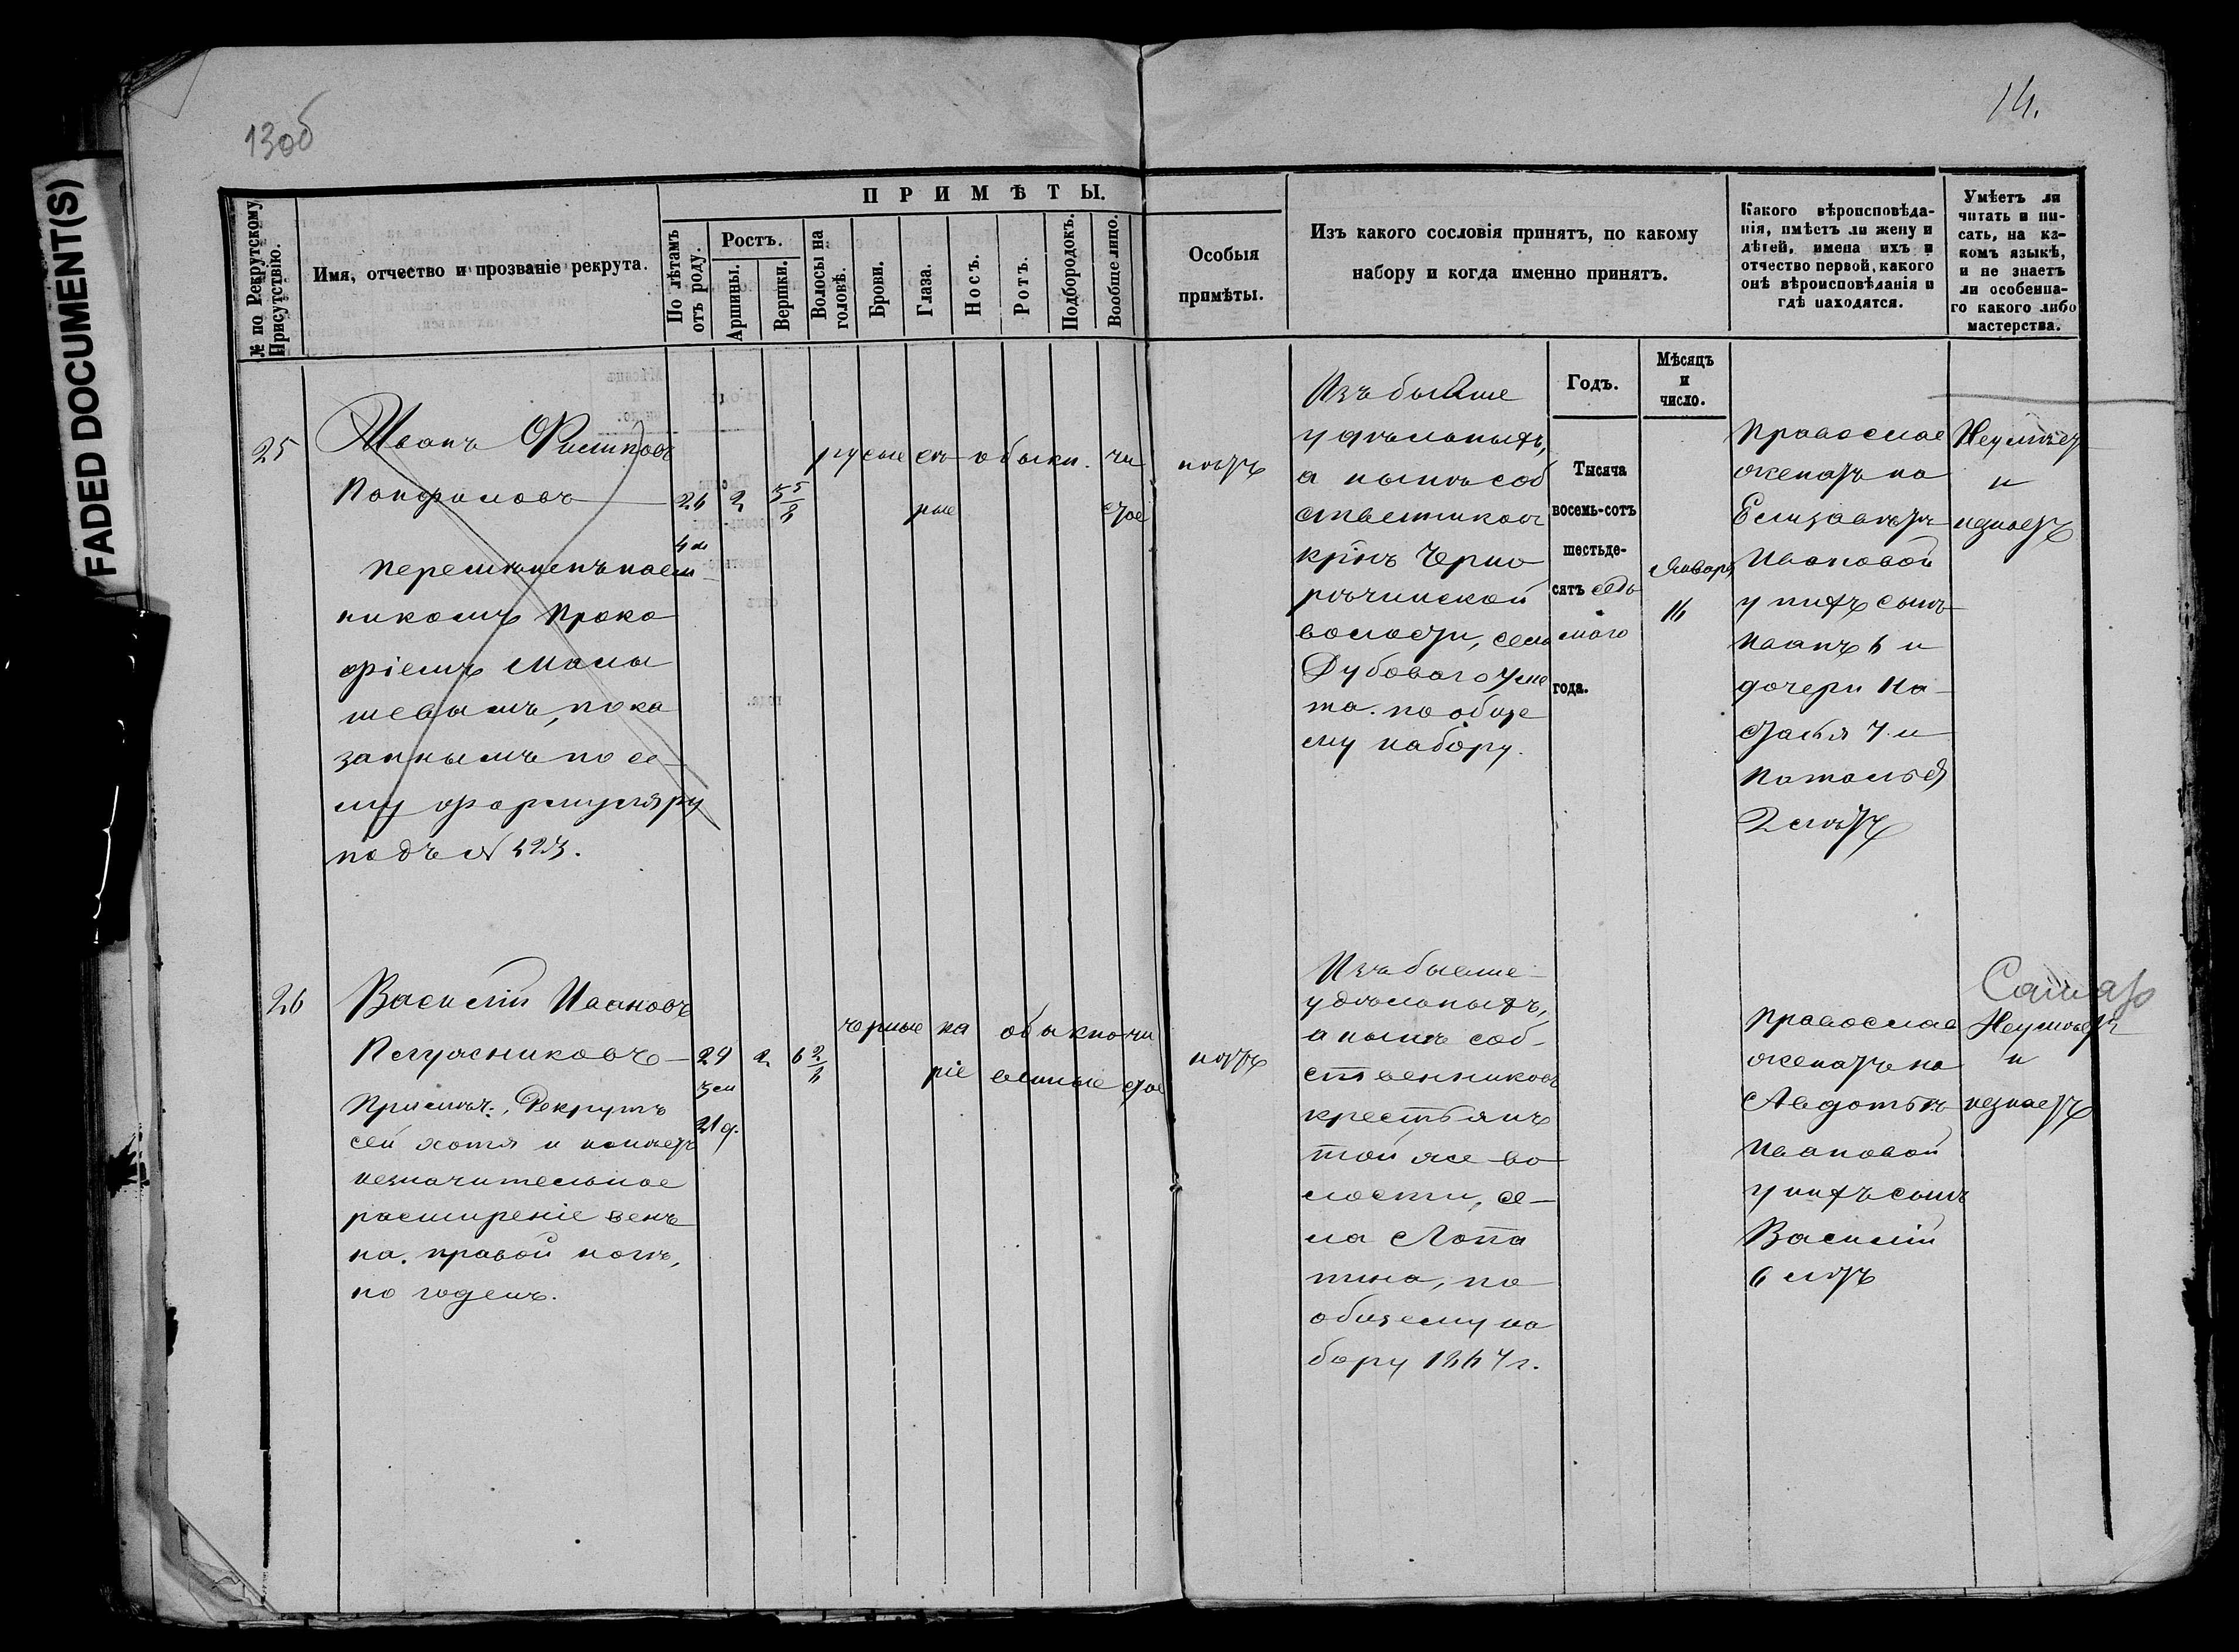 FADED DOCUMENT(S)
13 об
14.
№ по Рекрутскому Присутствію.
Имя, отчество и прозваніе рекрута.
ПРИМѢТЫ.
По лѣтамъ отъ роду.
Ростъ.
Аршины.
Вершки.
Волосы на головѣ.
Брови.
Глаза.
Носъ.
Ротъ.
Подбородокъ.
Вообще лицо.
Особыя
примѣты.
Изъ какого сословія принятъ, по какому
набору и когда именно принятъ.
Годъ.
Мѣсяцъ
и
число.
Какого вѣроисповѣда-
нія, имѣетъ ли жену и
дѣтей, имена ихъ и
отчество первой, какого
онѣ вѣроисповѣданія и
гдѣ находятся.
Умѣетъ ли
читать и пи-
сать, на ка-
комъ языкѣ,
и не знаетъ
ли особенна-
го какого либо
мастерства.
25
Иванъ Филиповъ
Панфиловъ
перемѣненъ наем
никомъ Проко
фіемъ Малы
шевымъ, пока
заннымъ по се-
му формуляру
подъ № 423.
26
4 м
2
3 5/8
русые
сѣ
рые
обыкн.
чи
стое
нѣтъ
Изъ бывше
удѣльныхъ,
а нынѣ соб
ственниковъ
кр̃нъ Черно
рѣчинской
волости, села
Дубоваго Уме
та. по обще
му набору.
Тысяча
восемь-сотъ
шестьде-
сятъ седь
маго
года.
Января
16
Православ
женатъ на
Елизаветѣ
Ивановой
у нихъ сынъ
Иванъ 6 и
дочери На-
стасья 7 и
Наталья
2 лѣтъ
Неумѣет
и
незнаетъ
26
Василій Ивановъ
Полуясниковъ
Примѣч: Рекрутъ
сей хотя и имѣетъ
незначительное
расширеніе венъ
на правой ногѣ,
но годенъ.
29
3 м
21 д.
2
6 2/8
черные
ка
ріе
обыкно
венные
чи
стое
нѣтъ
Изъ бывше
удѣльныхъ,
а нынѣ соб-
ственниковъ
крестьянъ
той же во
лости, се-
ла Лопа
тина, по
общему на
бору 1867 г.
Православ
женатъ на
Авдотьѣ
Ивановой
у нихъ сынъ
Василій
6 лѣтъ
Неумѣетъ
и
незнаетъ